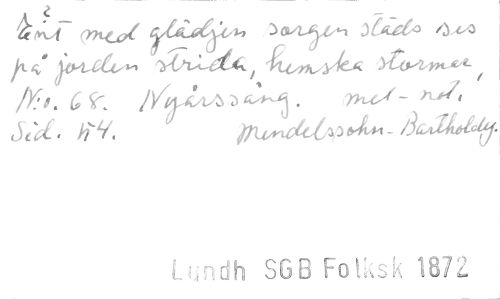 med glädjen sorgen städs ses
på jorden strida, hemska stormar,
N:o. 68. Nyårssång. mel-not.
Sid. 54. Mendelssohn-Bartholdy.
Lundh SGB Folksk 1872